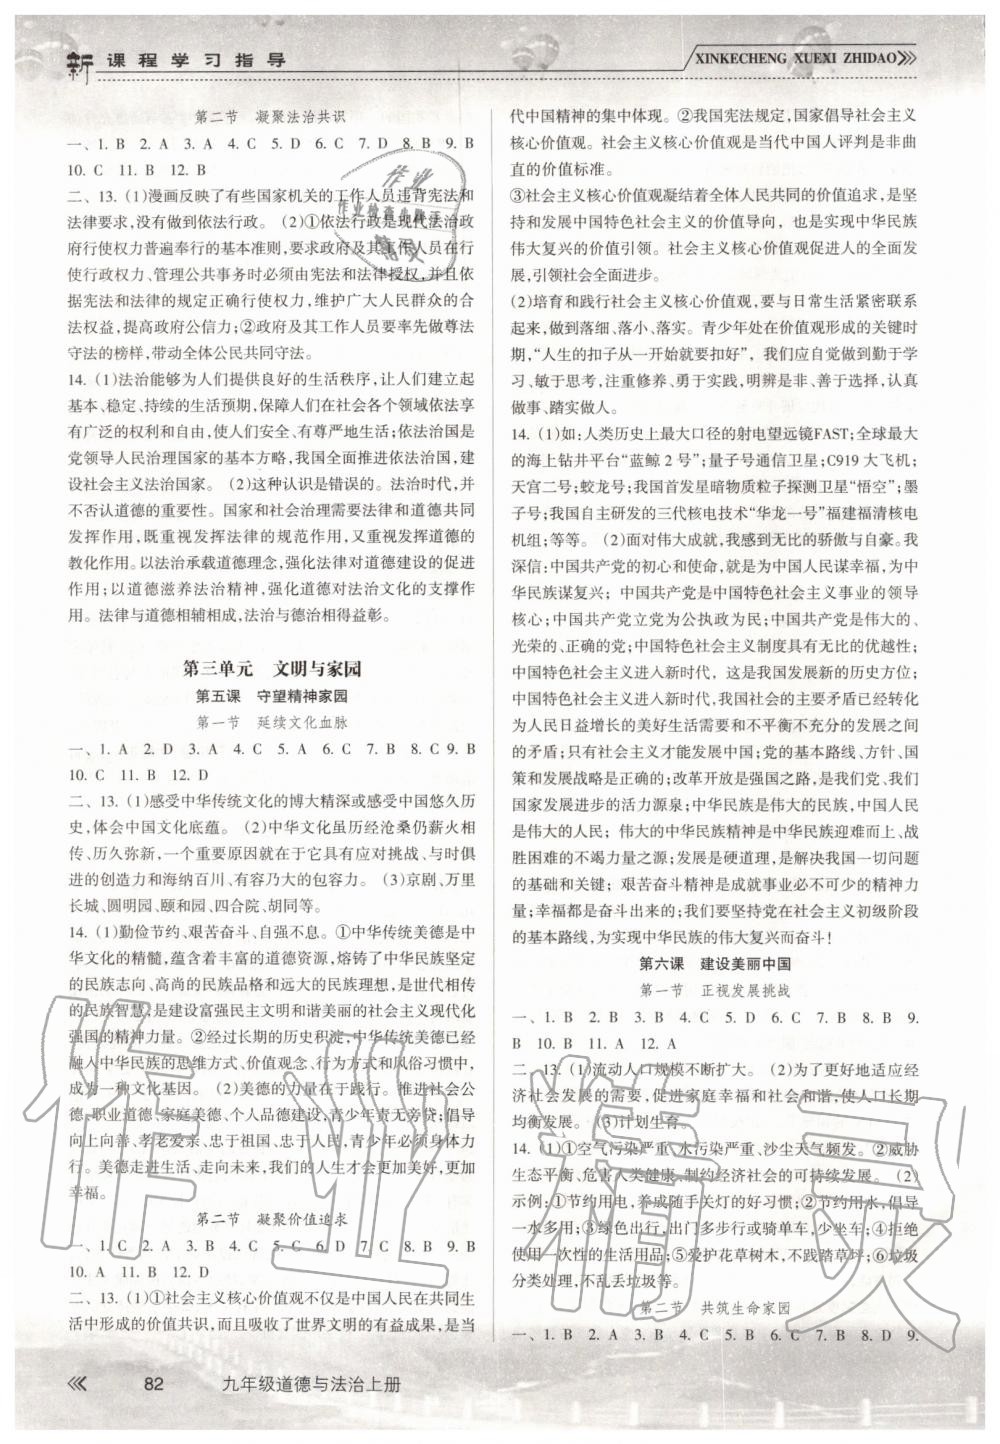 新课程学习指导
XINKECHENG XUEXI ZHIDAO
第二节 凝聚法治共识
一、1. B 2. A 3. A 4. C 5. D 6. C 7. D 8. B 9. B
10. C 11. B 12. B
二、13. (1)漫画反映了有些国家机关的工作人员违背宪法和
法律要求,没有做到依法行政。 (2)①依法行政是现代法治政
府行使权力普遍奉行的基本准则,要求政府及其工作人员在行
使行政权力、管理公共事务时必须由宪法和法律授权,并且依
据宪法和法律的规定正确行使权力, 维护广大人民群众的合
法权益,提高政府公信力;②政府及其工作人员要率先做尊法
守法的榜样,带动全体公民共同守法。
14. (1)法治能够为人们提供良好的生活秩序,让人们建立起
基本、稳定、持续的生活预期,保障人们在社会各个领域依法享
有广泛的权利和自由,使人们安全、有尊严地生活;依法治国是
党领导人民治理国家的基本方略,我国全面推进依法治国,建
设社会主义法治国家。 (2)这种认识是错误的。法治时代,并
不否认道德的重要性。国家和社会治理需要法律和道德共同
发挥作用,既重视发挥法律的规范作用,又重视发挥道德的
教化作用。以法治承载道德理念,强化法律对道德建设的促进
作用;以道德滋养法治精神,强化道德对法治文化的支撑作
用。法律与道德相辅相成,法治与德治相得益彰。
第三单元 文明与家园
第五课 守望精神家园
第一节 延续文化血脉
一、1. A 2. D 3. A 4. C 5. D 6. B 7. D 8. C 9. B
10. C 11. B 12. D
二、13. (1)感受中华传统文化的博大精深或感受中国悠久历
史,体会中国文化底蕴。 (2)中华文化虽历经沧桑仍薪火相
传、历久弥新,一个重要原因就在于它具有应对挑战、与时俱
进的创造力和海纳百川、有容乃大的包容力。 (3)京剧、万里
长城、圆明园、颐和园、四合院、胡同等。
14. (1)勤俭节约、艰苦奋斗、自强不息。①中华传统美德是中
华文化的精髓,蕴含着丰富的道德资源,熔铸了中华民族坚定
的民族志向、高尚的民族品格和远大的民族理想,是世代相传
的民族智慧,是建设富强民主文明和谐美丽的社会主义现代化
强国的精神力量。②经过长期的历史积淀,中华传统美德已经
融入中华民族的思维方式、价值观念、行为方式和风俗习惯中,
成为一种文化基因。 (2)美德的力量在于践行。推进社会公
德、职业道德、家庭美德、个人品德建设,青少年责无旁贷;倡导
向上向善、孝老爱亲、忠于祖国、忠于人民,青少年应该从我做
起。美德走进生活、走向未来,我们的人生才会更加美好,更加
幸福。
第二节 凝聚价值追求
一、1. C 2. A 3. D 4. B 5. C 6. D 7. C 8. D 9. B
10. A 11. B 12. D
二、13. (1)①社会主义核心价值观不仅是中国人民在共同生
活中形成的价值共识,而且吸收了世界文明的有益成果,是当
代中国精神的集中体现。②我国宪法规定,国家倡导社会主义
核心价值观。社会主义核心价值观是当代中国人评判是非曲
直的价值标准。
③社会主义核心价值观凝结着全体人民共同的价值追求,是坚
持和发展中国特色社会主义的价值导向, 也是实现中华民族
伟大复兴的价值引领。社会主义核心价值观促进人的全面发
展,引领社会全面进步。
(2)培育和践行社会主义核心价值观,要与日常生活紧密联系
起来,做到落细、落小、落实。青少年处在价值观形成的关键时
期,“人生的扣子从一开始就要扣好”, 我们应当自觉做到勤于学
习、敏于思考,注重修养、勇于实践,明辨是非、善于选择,认真
做事、踏实做人。
14. (1)如:人类历史上最大口径的射电望远镜FAST;全球最大
的海上钻井平台“蓝鲸 2 号”;量子号通信卫星;C919 大飞机;
天宫二号;蛟龙号;我国首发星暗物质粒子探测卫星“悟空”;墨
子号;我国自主研发的三代核电技术“华龙一号”福建福清核电
机组;等等。 (2)面对伟大成就,我感到无比的骄傲与自豪。我
深信:中国共产党的初心和使命,就是为中国人民谋幸福,为中
华民族谋复兴;中国共产党是中国特色社会主义事业的领导
核心;中国共产党立党为公执政为民;中国共产党是伟大的、
光荣的、正确的党;中国特色社会主义制度具有无比的优越性;
中国特色社会主义进入新时代,这是我国发展新的历史方位;
中国特色社会主义进入新时代,我国社会的主要矛盾已经转化
为人民日益增长的美好生活需要和不平衡不充分的发展之间
的矛盾;只有社会主义才能发展中国;党的基本路线、方针、国
策和发展战略是正确的;改革开放是强国之路,是我们党、我们
国家发展进步的活力源泉;中华民族是伟大的民族,中国人民
是伟大的人民;伟大的中华民族精神是中华民族迎难而上、战
胜困难的不竭力量之源;发展是硬道理,是解决我国一切问题
的基础和关键;艰苦奋斗精神是成就事业必不可少的精神力
量;幸福都是奋斗出来的;我们要坚持党在社会主义初级阶段
的基本路线,为实现中华民族的伟大复兴而奋斗!
第六课 建设美丽中国
第一节 正视发展挑战
一、1. B 2. B 3. B 4. C 5. D 6. C 7. B 8. B 9.
B 10. B 11. A 12. A
二、13. (1)流动人口规模不断扩大。 (2)为了更好地适应经
济社会发展的需要,促进家庭幸福和社会和谐,使人口长期
均衡发展。 (3)计划生育。
14. (1)①空气污染严重、水污染严重、沙尘天气频发。②威胁
生态平衡、危害人类健康、制约经济社会的可持续发展。 (2)
示例:①节约用电,养成随手关灯的好习惯;②节约用水,倡导
一水多用;③绿色出行,出门多步行或骑车,少坐车;④拒绝
使用一次性的生活用品;⑤爱护花草树木,不践踏草坪;⑥垃圾
分类处理,不乱丢垃圾等。
第二节 共筑生命家园
一、1. B 2. B 3. B 4. C 5. A 6. D 7. B 8. D 9.
82 九年级道德与法治上册
作业精灵